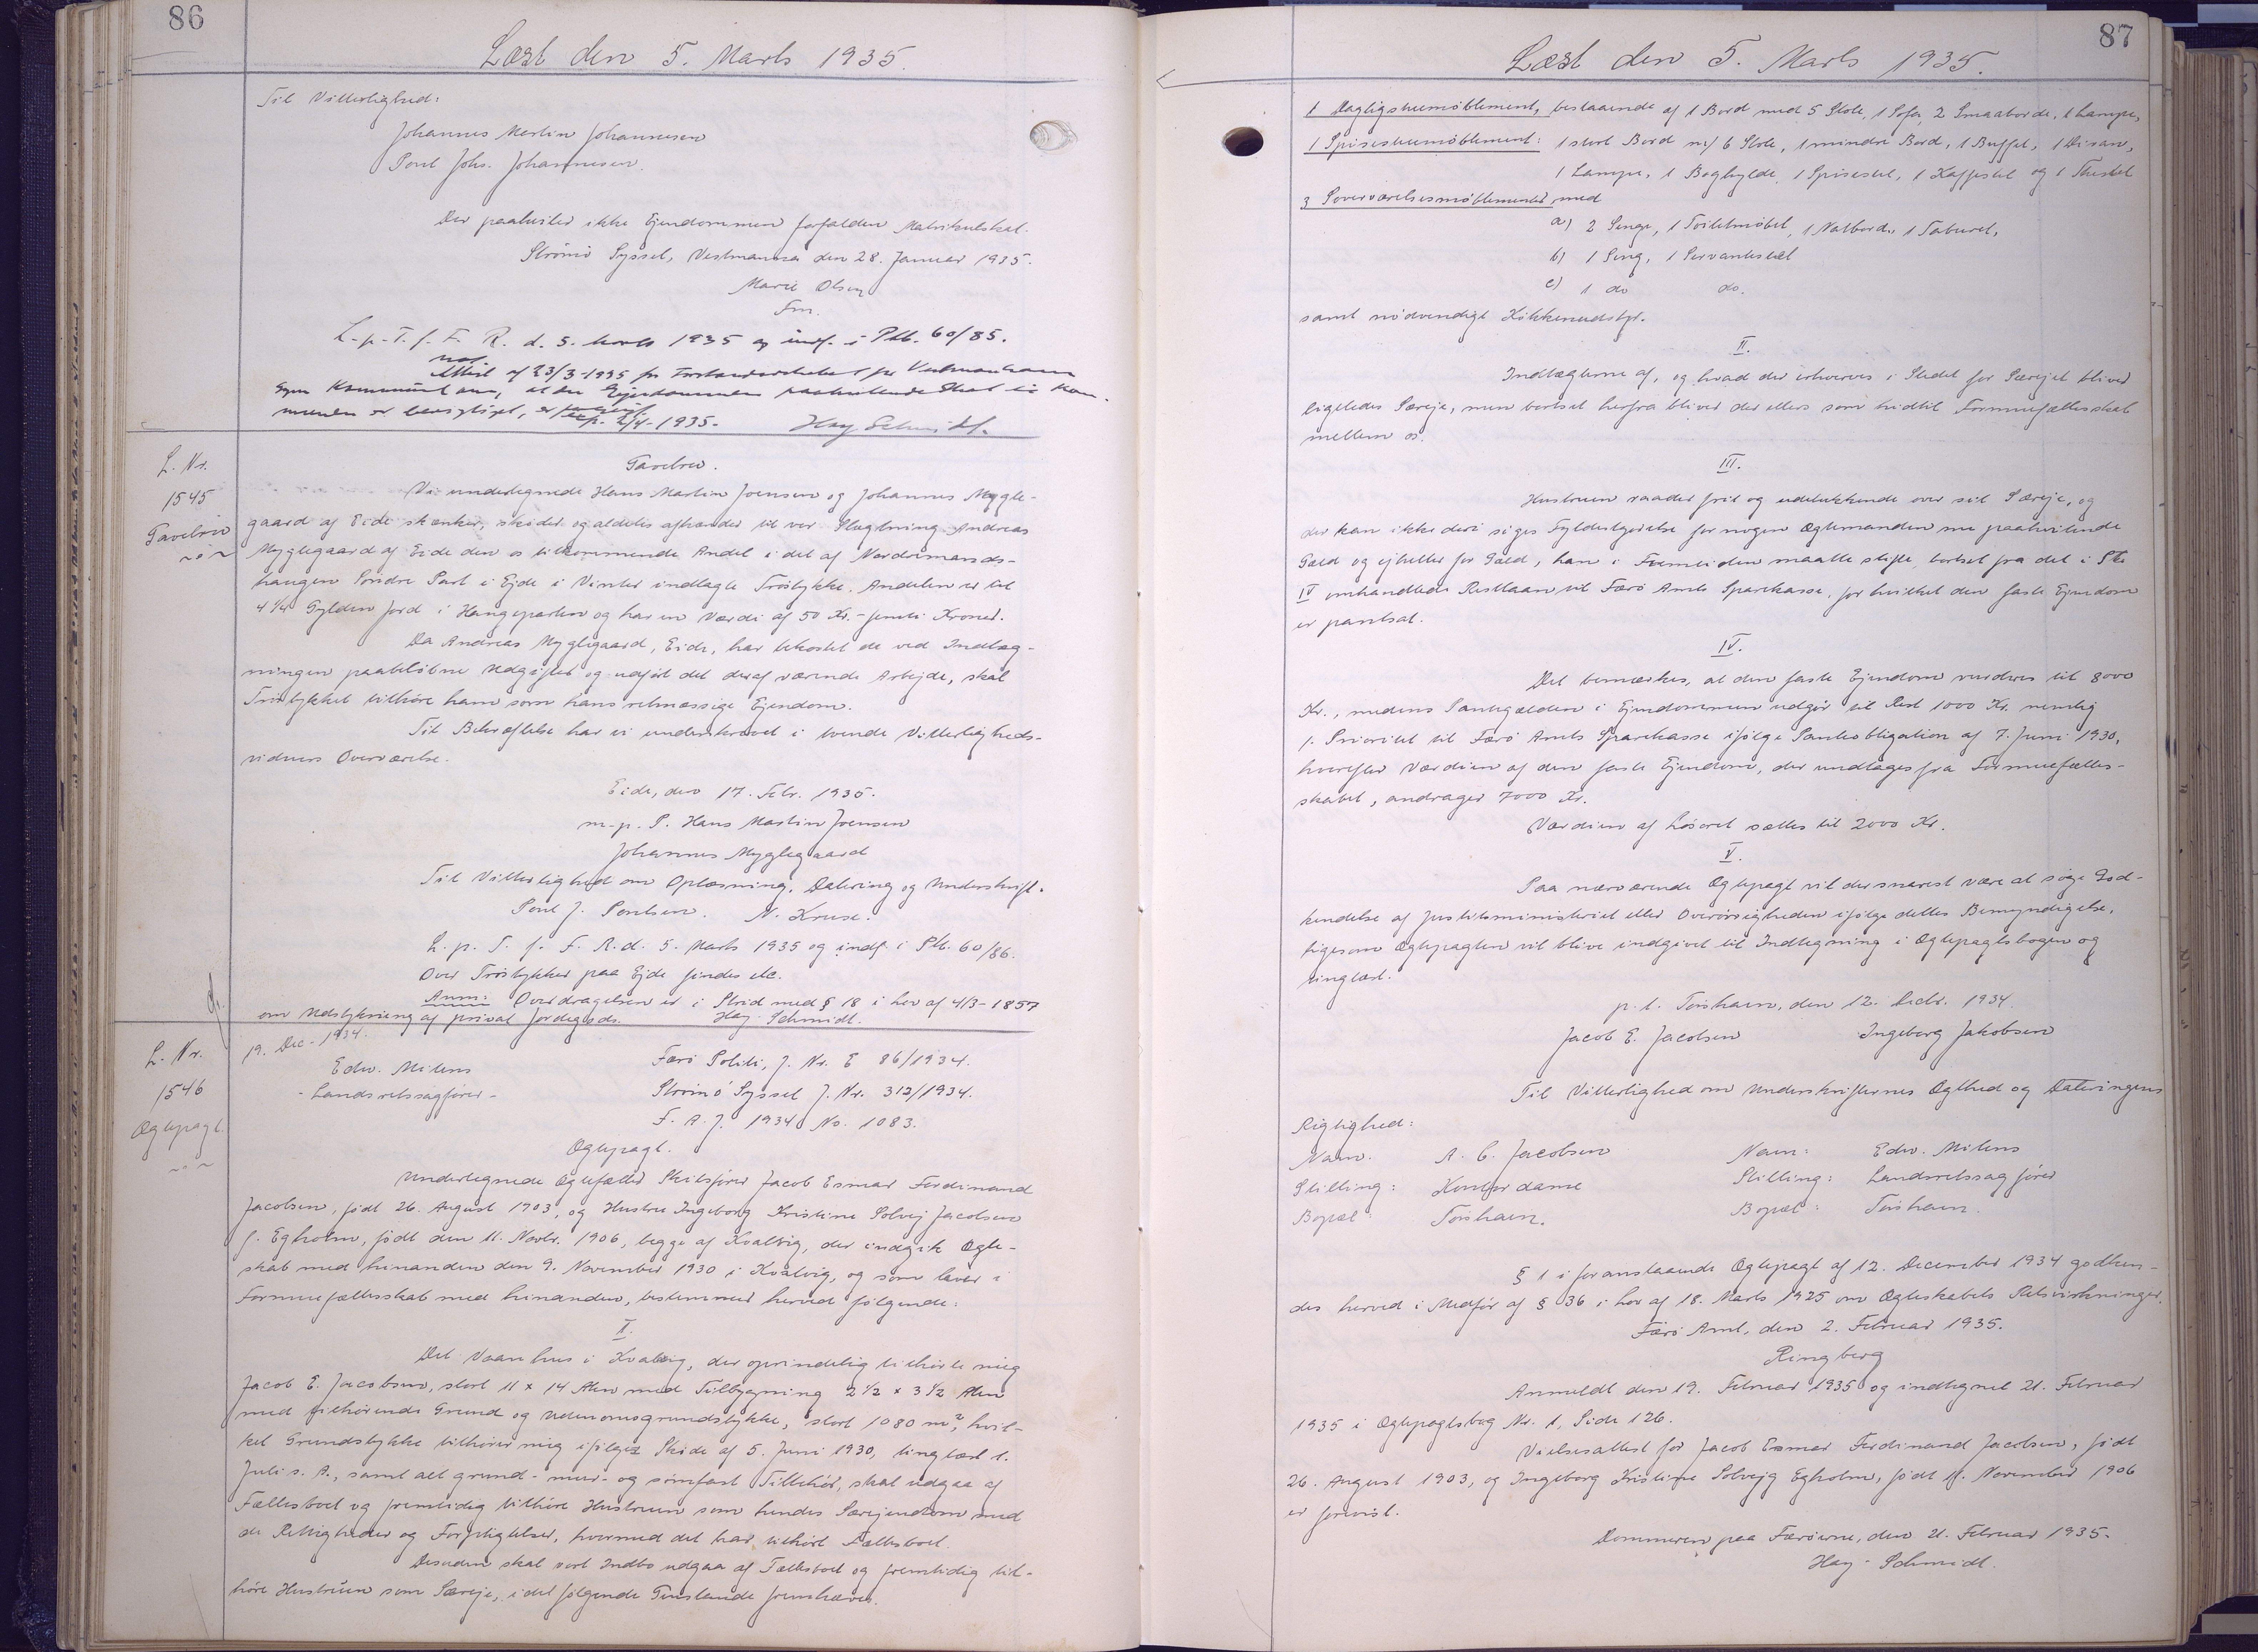 86
Læst den 5. Marts 1935.
Til Vitterlighed:
Johannes Martin Johannesen
Poul Johs. Johannesen.
Der paahviler ikke Ejendommen forfalden Matrikulskat.
Strömö Syssel, Vestmanna den 28. Januar 1935.
Marie Olsen
Fm.
L. p. T. f. F. R. d. 5. Marts 1935 og indf. i Ptb. 60/85.
Attest af 23/3-1935 fra Forstanderskabet for Vestmanhavn
Sogns Kommune om, at den Ejendommen paahvilende Skat til Kom-
munen er berigtiget, er 2/4-1935. Hey Schmidt.
L. Nr.
1545
Gavebrev
~o~
Gavebrev.
Vi undertegnede Hans Martin Joensen og Johannes Mygle-
gaard af Eide skænker, sköder og aldeles afhænder til vor Slægtning Andreas
Myglegaard af Eide den os tilkommende Andel i det af Nordremands-
haugen Söndre Part i Ejde i Vinter indlagte Tröstykke. Andelen er til
4 1/4 Gylden Jord i Haugeparten og har en Værdi af 50 Kr. - femti Kroner.
Da Andreas Myglegaard, Eide, har bekostet de ved Indlæg-
ningen paaløbne Udgifter og udført det deraf værende Arbejde, skal
Tröstykket tilhøre ham som hans retmæssige Ejendom.
Til Bekræftelse har vi underskrevet i tvende Vitterligheds-
vidners Overværelse.
Eide, den 17. Febr. 1935.
m. p. P. Hans Martin Joensen
Johannes Myglegaard
Til Vitterlighed om Oplæsning, Datering og Underskrift.
Poul J. Poulsen. N. Kruse.
L. p. T. f. F. R. d. 5. Marts 1935 og indf. i Ptb. 60/86.
Over Tröstykker paa Ejde findes etc.
Anm: Overdragelsen er i Strid med § 18 i Lov af 4/3-1857
om Udstykning af privat Jordegods. Hey-Schmidt.
L. Nr.
1546
Ægtepagt.
~o~
19. Dec. 1934.
Edw. Mitens
- Landsretssagfører -
Færö Politi, J. Nr. E 86/1934.
Strömö Syssel J. Nr. 312/1934.
F. A. J. 1934 No. 1083.
Ægtepagt.
Undertegnede Ægtefæller Skibsfører Jacob Esmar Ferdinand
Jacobsen, født 26. August 1903, og Hustru Ingeborg Kristine Solvej Jacobsen
f. Egholm, født den 11. Novbr. 1906, begge af Kvalvig, der indgik Ægte-
skab med hinanden den 9. November 1930 i Kvalvig, og som lever i
Formuefællesskab med hinanden, bestemmer herved følgende:
I.
Det Vaanhus i Kvalvig, der oprindelig tilhørte mig
Jacob E. Jacobsen, stort 11 x 14 Alen med Tilbygning 2 1/2 x 3 1/2 Alen
med tilhørende Grund og Udenomsgrundstykke, stort 1080 m², hvil-
ket Grundstykke tilhører mig ifølge Skøde af 5. Juni 1930, tinglæst 1.
Juli s. A., samt alt grund- mur- og sømfast Tilbehør, skal udgaa af
Fællesboet og fremtidig tilhøre Hustruen som hendes Særejendom med
de Rettigheder og Forpligtelser, hvormed det har tilhørt Fællesboet.
Desuden skal vort Indbo udgaa af Fællesboet og fremtidig til-
høre Hustruen som Særeje, idet følgende Genstande fremhæves.
87
Læst den 5. Marts 1935.
1 Dagligstuemøblement, bestaaende af 1 Bord med 5 Stole, 1 Sofa, 2 Smaaborde, 1 Lampe,
1 Spisestuemøblement: 1 stort Bord m/ 6 Stole, 1 mindre Bord, 1 Buffet, 1 Divan,
1 Lampe, 1 Boghylde, 1 Spisestel, 1 Kaffestel og 1 Thestel
3 Soveværelsesmøblementer med
a) 2 Senge, 1 Toiletmøbel, 1 Natbord, 1 Taburet,
b) 1 Seng, 1 Servantestel
c) 1 do do.
samt nødvendigt Køkkenudstyr.
II.
Indtægterne af, og hvad der erhverves i Stedet for Særejet bliver
ligeledes Særeje, men bortset herfra bliver der ellers som hidtil Formuefællesskab
mellem os.
III.
Hustruen raader frit og udelukkende over sit Særeje, og
der kan ikke deri søges Fyldestgørelse for nogen Ægtemanden nu paahvilende
Gæld og ej heller for Gæld, han i Fremtiden maatte stifte, bortset fra det i Stk
IV omhandlede Restlaan til Færö Amts Sparekasse, for hvilket den faste Ejendom
er pantsat.
IV.
Det bemærkes, at den faste Ejendom vurderes til 8000
Kr., medens Pantegælden i Ejendommen udgør til Rest 1000 Kr. nemlig
1. Prioritet til Færö Amts Sparekasse ifølge Panteobligation af 7. Juni 1930,
hvorefter Værdien af den faste Ejendom, der undtages fra Formuefælles-
skabet, andrager 7000 Kr.
Værdien af Løsøret sættes til 2000 Kr.
V.
Paa nærværende Ægtepagt vil der snarest være at søge God-
kendelse af Justitsministeriet eller Overøvrigheden ifølge dettes Bemyndigelse,
ligesom Ægtepagten vil blive indgivet til Indtegning i Ægtepagtsbogen og
tinglæst.
p. t. Torshavn, den 12. Decbr. 1934.
Jacob E. Jacobsen Ingeborg Jakobsen
Til Vitterlighed om Underskrifternes Ægthed og Dateringens
Rigtighed:
Navn: A. C. Jacobsen Navn: Edw. Mitens
Stilling: Kontordame Stilling: Landsretssagfører
Bopæl: Torshavn. Bopæl: Torshavn.
§ 1 i foranstaaende Ægtepagt af 12. December 1934 godken-
des herved i Medfør af § 36 i Lov af 18. Marts 1925 om Ægteskabets Retsvirkninger.
Færö Amt, den 2. Februar 1935.
Ringberg
Anmeldt den 19. Februar 1935 og indtegnet 21. Februar
1935 i Ægtepagtsbog Nr. 1, Side 126.
Vielsesattest for Jacob Esmar Ferdinand Jacobsen, født
26. August 1903, og Ingeborg Kristine Solvejg Egholm, født 11. November 1906
er forevist.
Dommeren paa Færøerne, den 21. Februar 1935.
Hey-Schmidt.